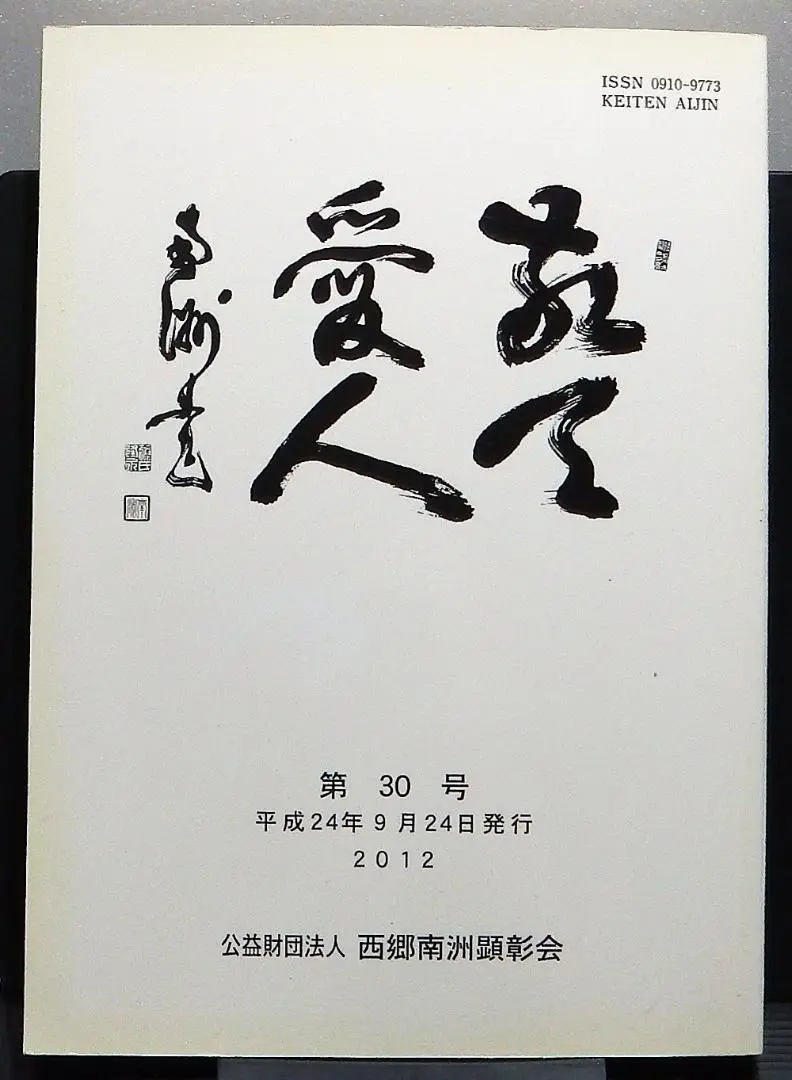 ISSN 0910-9773
KEITEN AIJIN
敬天
愛人
南洲書
第 30 号
平成24年9月24日発行
2012
公益財団法人 西郷南洲顕彰会